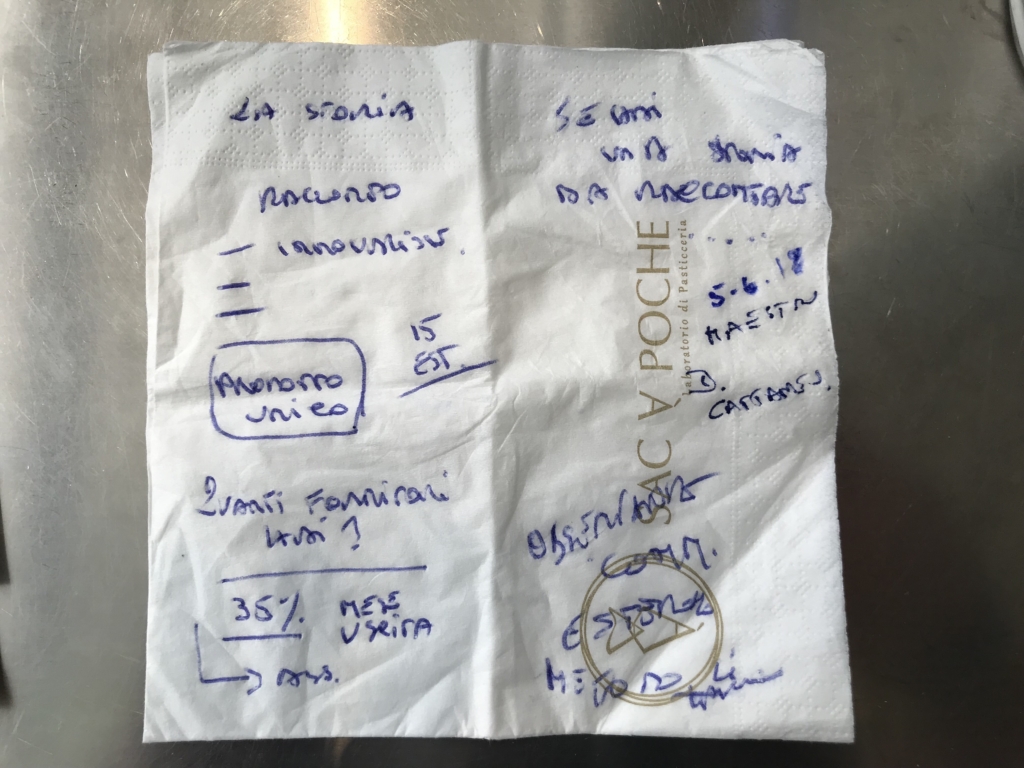 LA STORIA
RACCONTO
– INNOVAZIONE.
–
–
15
EST.
PRODOTTO
UNICO
QUANTI FORNITORI
HAI?
35% MERE
USCITA
→ ASS.
SE HAI
UNA STORIA
DA RACCONTARE
. . . .
5.6.18
MAESTRI
SAC À POCHE
Laboratorio di Pasticceria
COMM.
ESTERO
METODO